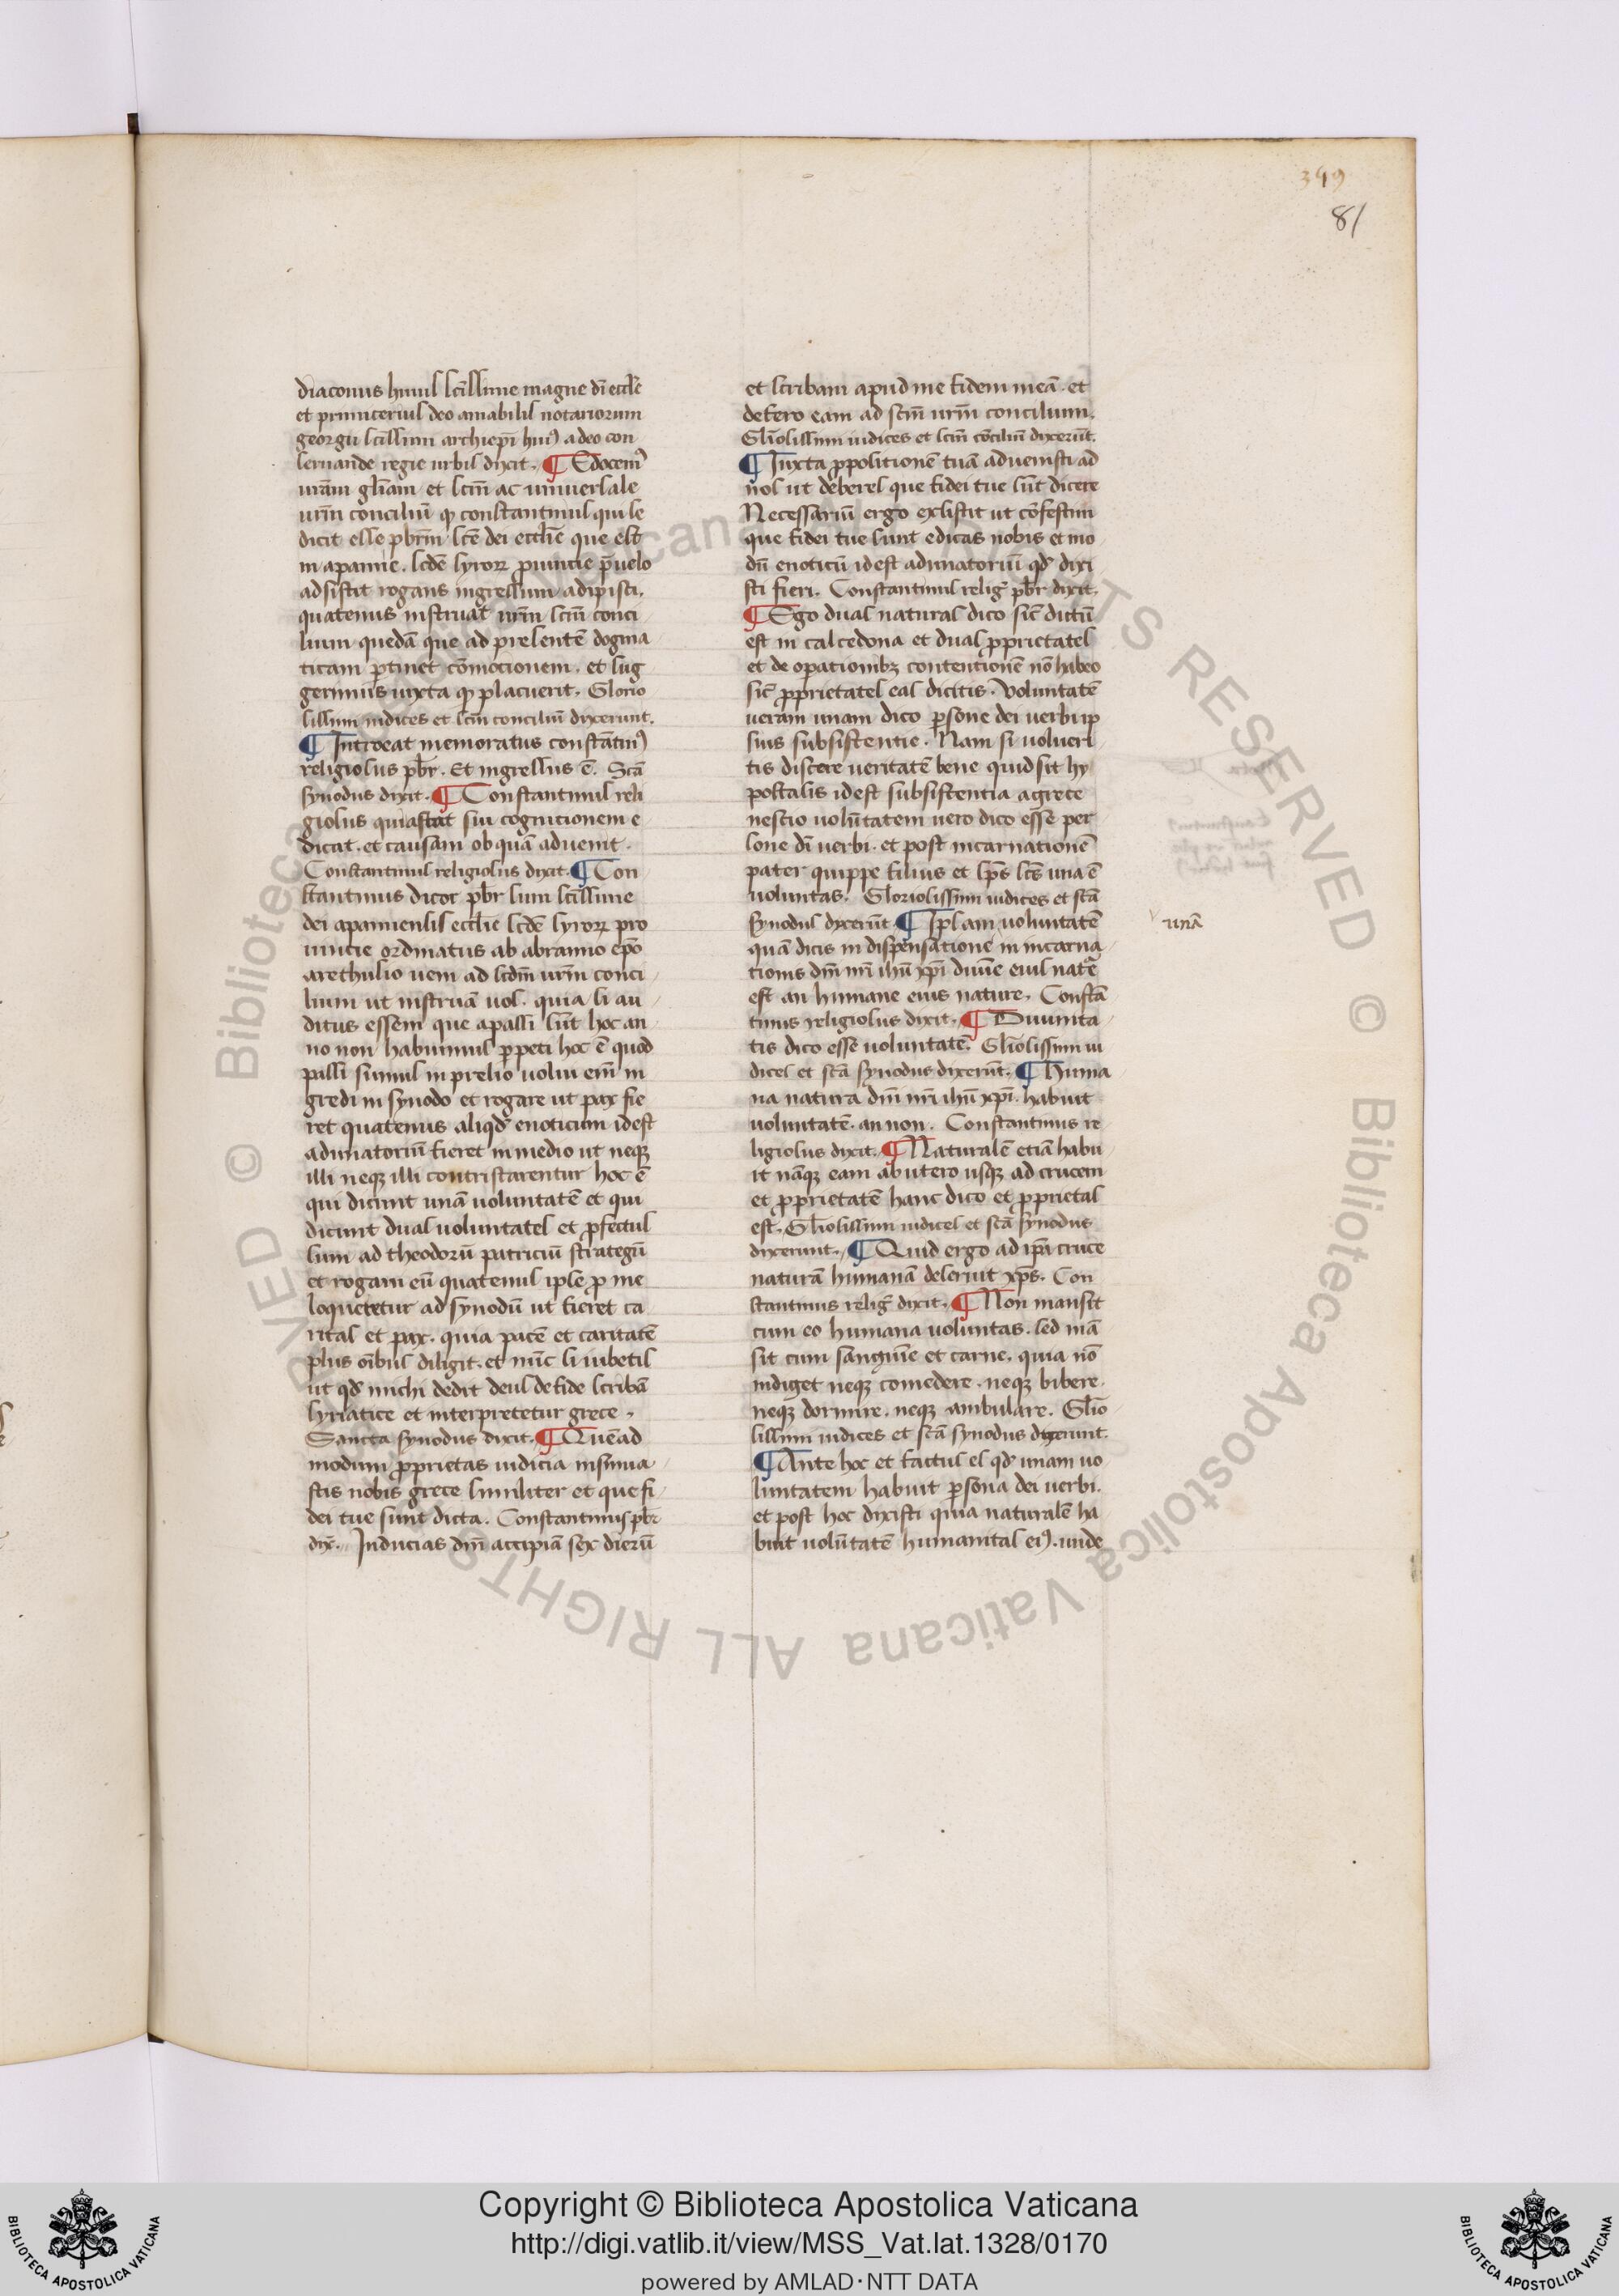 349
81
diaconus huius scissime magne dī eccle
et primicerius deo amabilis notariorum
georgii scissimi archiepī huiꝰ a deo con
seruande regie urbis dixit. ¶ Edocemꝰ
uram gliam et scm̄ ac uniuersale
urm̄ conciliū qꝫ constantinus qui se
dicit esse pbrm̄ scē dei ecclie que est
in apamie. scdē syroꝝ ꝓuincie p̄uelo
adsistit rogans ingressum adipisci.
quatenus instruat urm̄ scm̄ conci
lium quedā que ad presentē dogma
ticam ꝑtinet cōmotionem. et sug
gerimus iuxta qꝫ placuerit. Glorio
sissimi iudices et scm̄ conciliū dixerunt.
¶ Introeat memoratus constātinꝰ
religiosus pbr̄. Et ingressus ē. Scā
synodus dixit. ¶ Constantinus reli
giosus quia stat sui cognitionem e
dicat. et causam ob quā aduenit.
Constantinus religiosus dixit. ¶ Con
stantinus dicor pbr̄ sum scissime
dei apamiensis ecclie scdē syroꝝ pro
uincie ordinatus ab abramio epō
arethusio ueni ad scdm̄ urm̄ conci
lium ut instruā uos. quia si au
ditus essem que a passi sūt hoc an
no non habuimus ꝑpeti hoc ē quod
passi sumus in prelio uolui em̄ in
gredi in synodo et rogare ut pax fie
ret quatenus aliqd̄ enoticum idest
adunatoriū fieret in medio ut neqꝫ
illi neqꝫ illi contristarentur hoc ē
qui dicunt unā uoluntatē et qui
dicunt duas uoluntates et ꝓfectus
sum ad theodorū patriciū strategū
et rogaui eū quatenus ipse ꝓ me
loqueretur ad synodū ut fieret ca
ritas et pax. quia pacē et caritatē
plus oībus diligit. et nūc si iubetis
ut qd̄ michi dedit deus de fide scribā
syriatice et interpretetur grece.
Sancta synodus dixit. ¶ Quēad
modum ꝓprietas iudicia insinua
stis nobis grece similiter et que fi
dei tue sunt dicta. Constantinus pbr̄
dix̄. Inducias dm̄ accipiā sex dierū
et scribam apud me fidem meā. et
defero eam ad scm̄ urm̄ concilium.
Gliosissimi iudices et scm̄ cōciliū dixerūt.
¶ Iuxta ꝓpositionē tuā aduenisti ad
nos ut deberes que fidei tue sūt dicere
Necessariū ergo exsistit ut cōfestim
que fidei tue sunt edicas nobis et mo
dū enoticū idest adunatoriū qd̄ dixi
sti fieri. Constantinus reliḡ pbr̄ dixit.
¶ Ego duas naturas dico sic̄ dictū
est in calcedona et duas ꝓprietates
et de oꝑationibꝫ contentionē nō habeo
sic̄ ꝓprietates eas dicitis. Voluntatē
ueram unam dico ꝑsone dei uerbi ip
sius subsistentie. Nam si uolueri
tis discere ueritatē bene quid sit hy
postasis idest subsistentia a grece
nescio uolūtatem uero dico esse per
sone dī uerbi. et post incarnationē
pater quippe filius et sps̄ scs̄ una ē
uoluntas. Gloriosissimi iudices et scā
synodus dixerūt ¶ Ipsam uoluntatē
unā
quā dicis in dispensatione in incarna
tionis dm̄ nr̄i ihū xpī diuine eius nat̄e
est an humane eius nature. Constā
tinus religiosus dixit. ¶ Diuinita
tis dico esse uoluntatē. Gliosissimi iu
dices et scā synodus dixerūt. ¶ Huma
na natura dm̄ nr̄i ihū xpī. habuit
uoluntatē. an non. Constantinus re
ligiosus dixit. ¶ Naturalē etiā habu
it nāqꝫ eam ab utero usqꝫ ad crucem
et ꝓprietatē hanc dico et ꝓprietas
est. Gliosissimi iudices et scā synodus
dixerunt. ¶ Quid ergo ad ipā cruce
naturā humanā deseruit xps̄. Con
stantinus reliḡ dixit. ¶ Non mansit
cum eo humana uoluntas. sed mā
sit cum sanguine et carne. quia nō
indiget neqꝫ comedere. neqꝫ bibere.
neqꝫ dormire. neqꝫ ambulare. Glio
sissimi iudices et scā synodus dixerunt.
¶ Ante hoc et factus es qd̄ unam uo
luntatem habuit ꝑsona dei uerbi.
et post hoc dixisti quia naturalē ha
buit uolūtatē humanitas eiꝰ. unde
Copyright © Biblioteca Apostolica Vaticana
http://digi.vatlib.it/view/MSS_Vat.lat.1328/0170
powered by AMLAD·NTT DATA
BIBLIOTECA APOSTOLICA VATICANA
BIBLIOTECA APOSTOLICA VATICANA
© Biblioteca Apostolica Vaticana ALL RIGHTS RESERVED